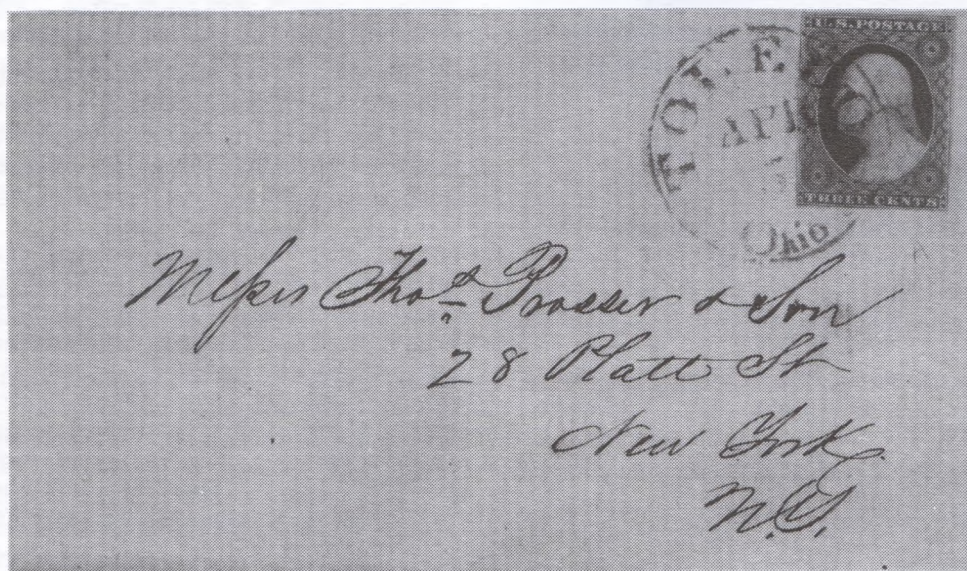 U.S. POSTAGE
THREE CENTS
TOLE
AP
Ohio
Messrs Thos Prosser & Son
28 Platt St
New York
N.Y.